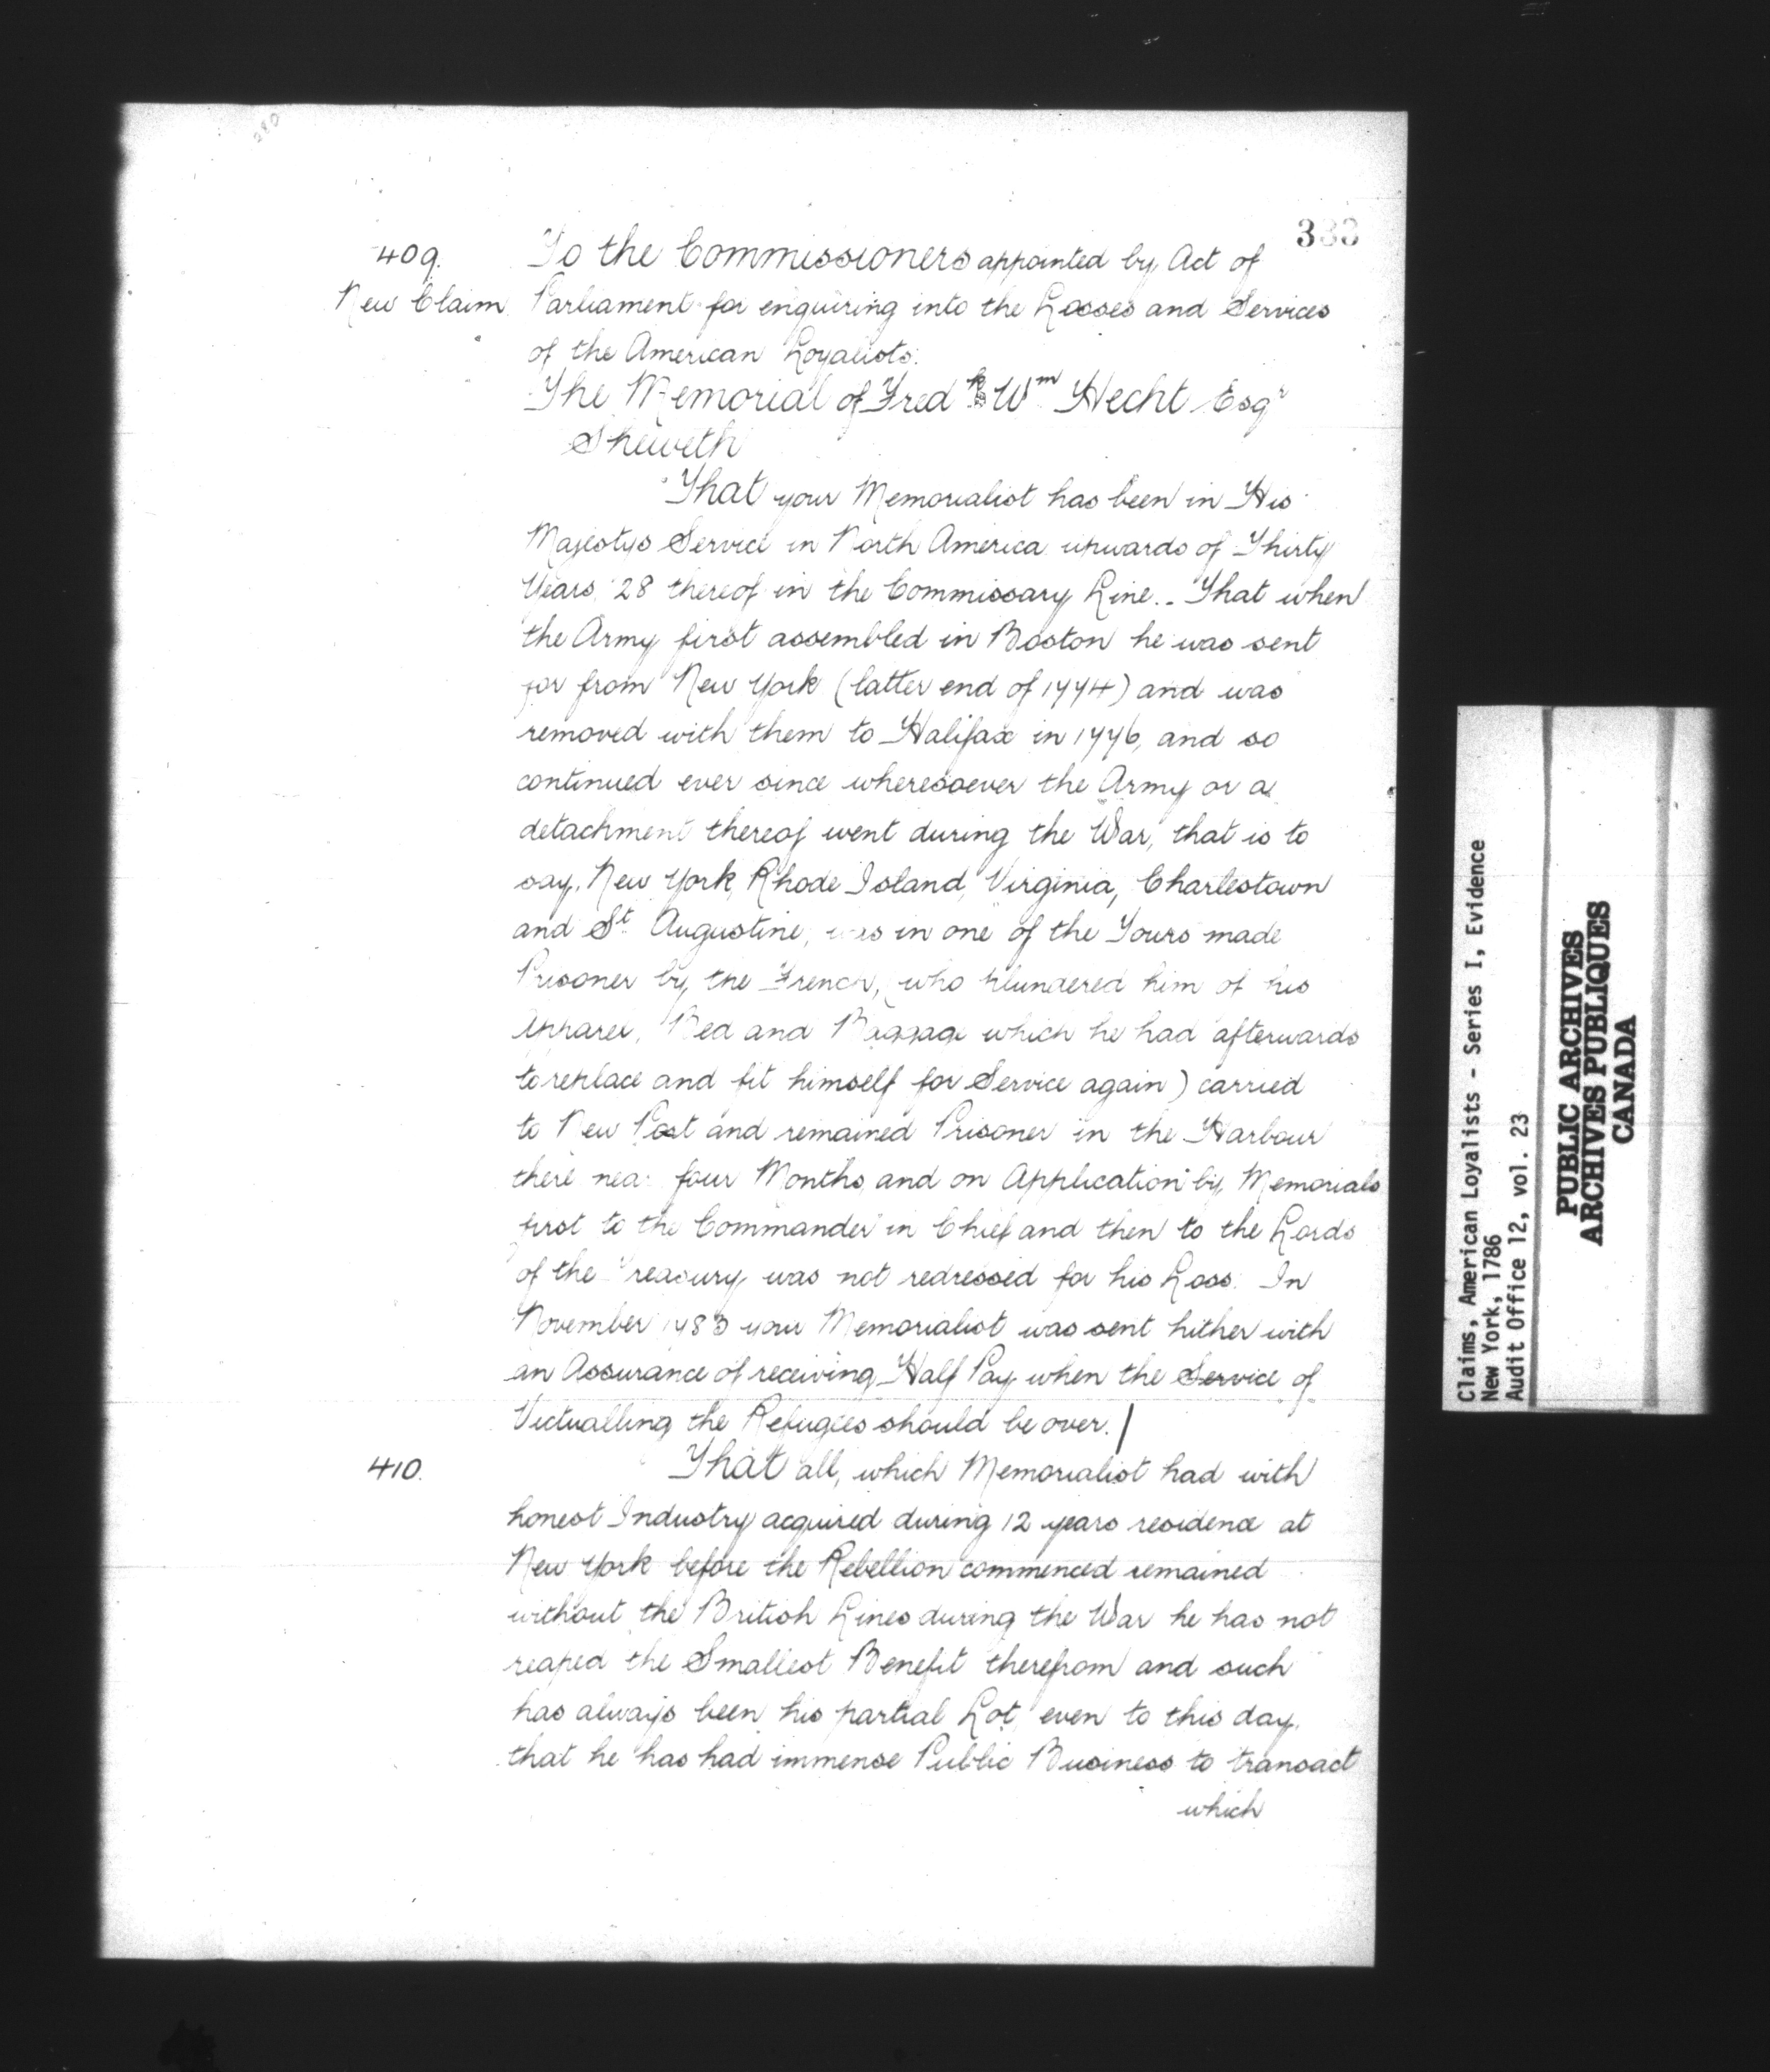 333
409.
New Claim
To the Commissioners appointed by Act of
Parliament for enquiring into the Losses and Services
of the American Loyalists.
The Memorial of Fred k Wm Hecht Esqr
Sheweth
That your Memorialist has been in His
Majestys Service in North America upwards of Thirty
Years 28 thereof in the Commissary Line.. That when
the Army first assembled in Boston he was sent
for from New York (latter end of 1774) and was
removed with them to Halifax in 1776, and so
continued ever since wheresoever the Army or a
detachment thereof went during the War, that is to
say, New York, Rhode Island, Virginia, Charlestown
and St. Augustine, was in one of the Tours made
Prisoner by the French, (who plundered him of his
Apparel, Bed and Baggage which he had afterwards
to replace and fit himself for Service again) carried
to New Post and remained Prisoner in the Harbour
there near four Months and on Application by Memorials
first to the Commander in Chief and then to the Lords
of the Treasury was not redressed for his Loss. In
November 1783 your Memorialist was sent hither with
an Assurance of receiving Half Pay when the Service of
Victualling the Refugees should be over. /
410.
That all, which Memorialist had with
honest Industry acquired during 12 years residence at
New York before the Rebellion commenced remained
without the British Lines during the War he has not
reaped the Smallest Benefit therefrom and such
has always been his partial Lot, even to this day,
that he has had immense Public Business to transact
which
Claims, American Loyalists - Series I, Evidence
New York, 1786
Audit Office 12, vol. 23
PUBLIC ARCHIVES
ARCHIVES PUBLIQUES
CANADA